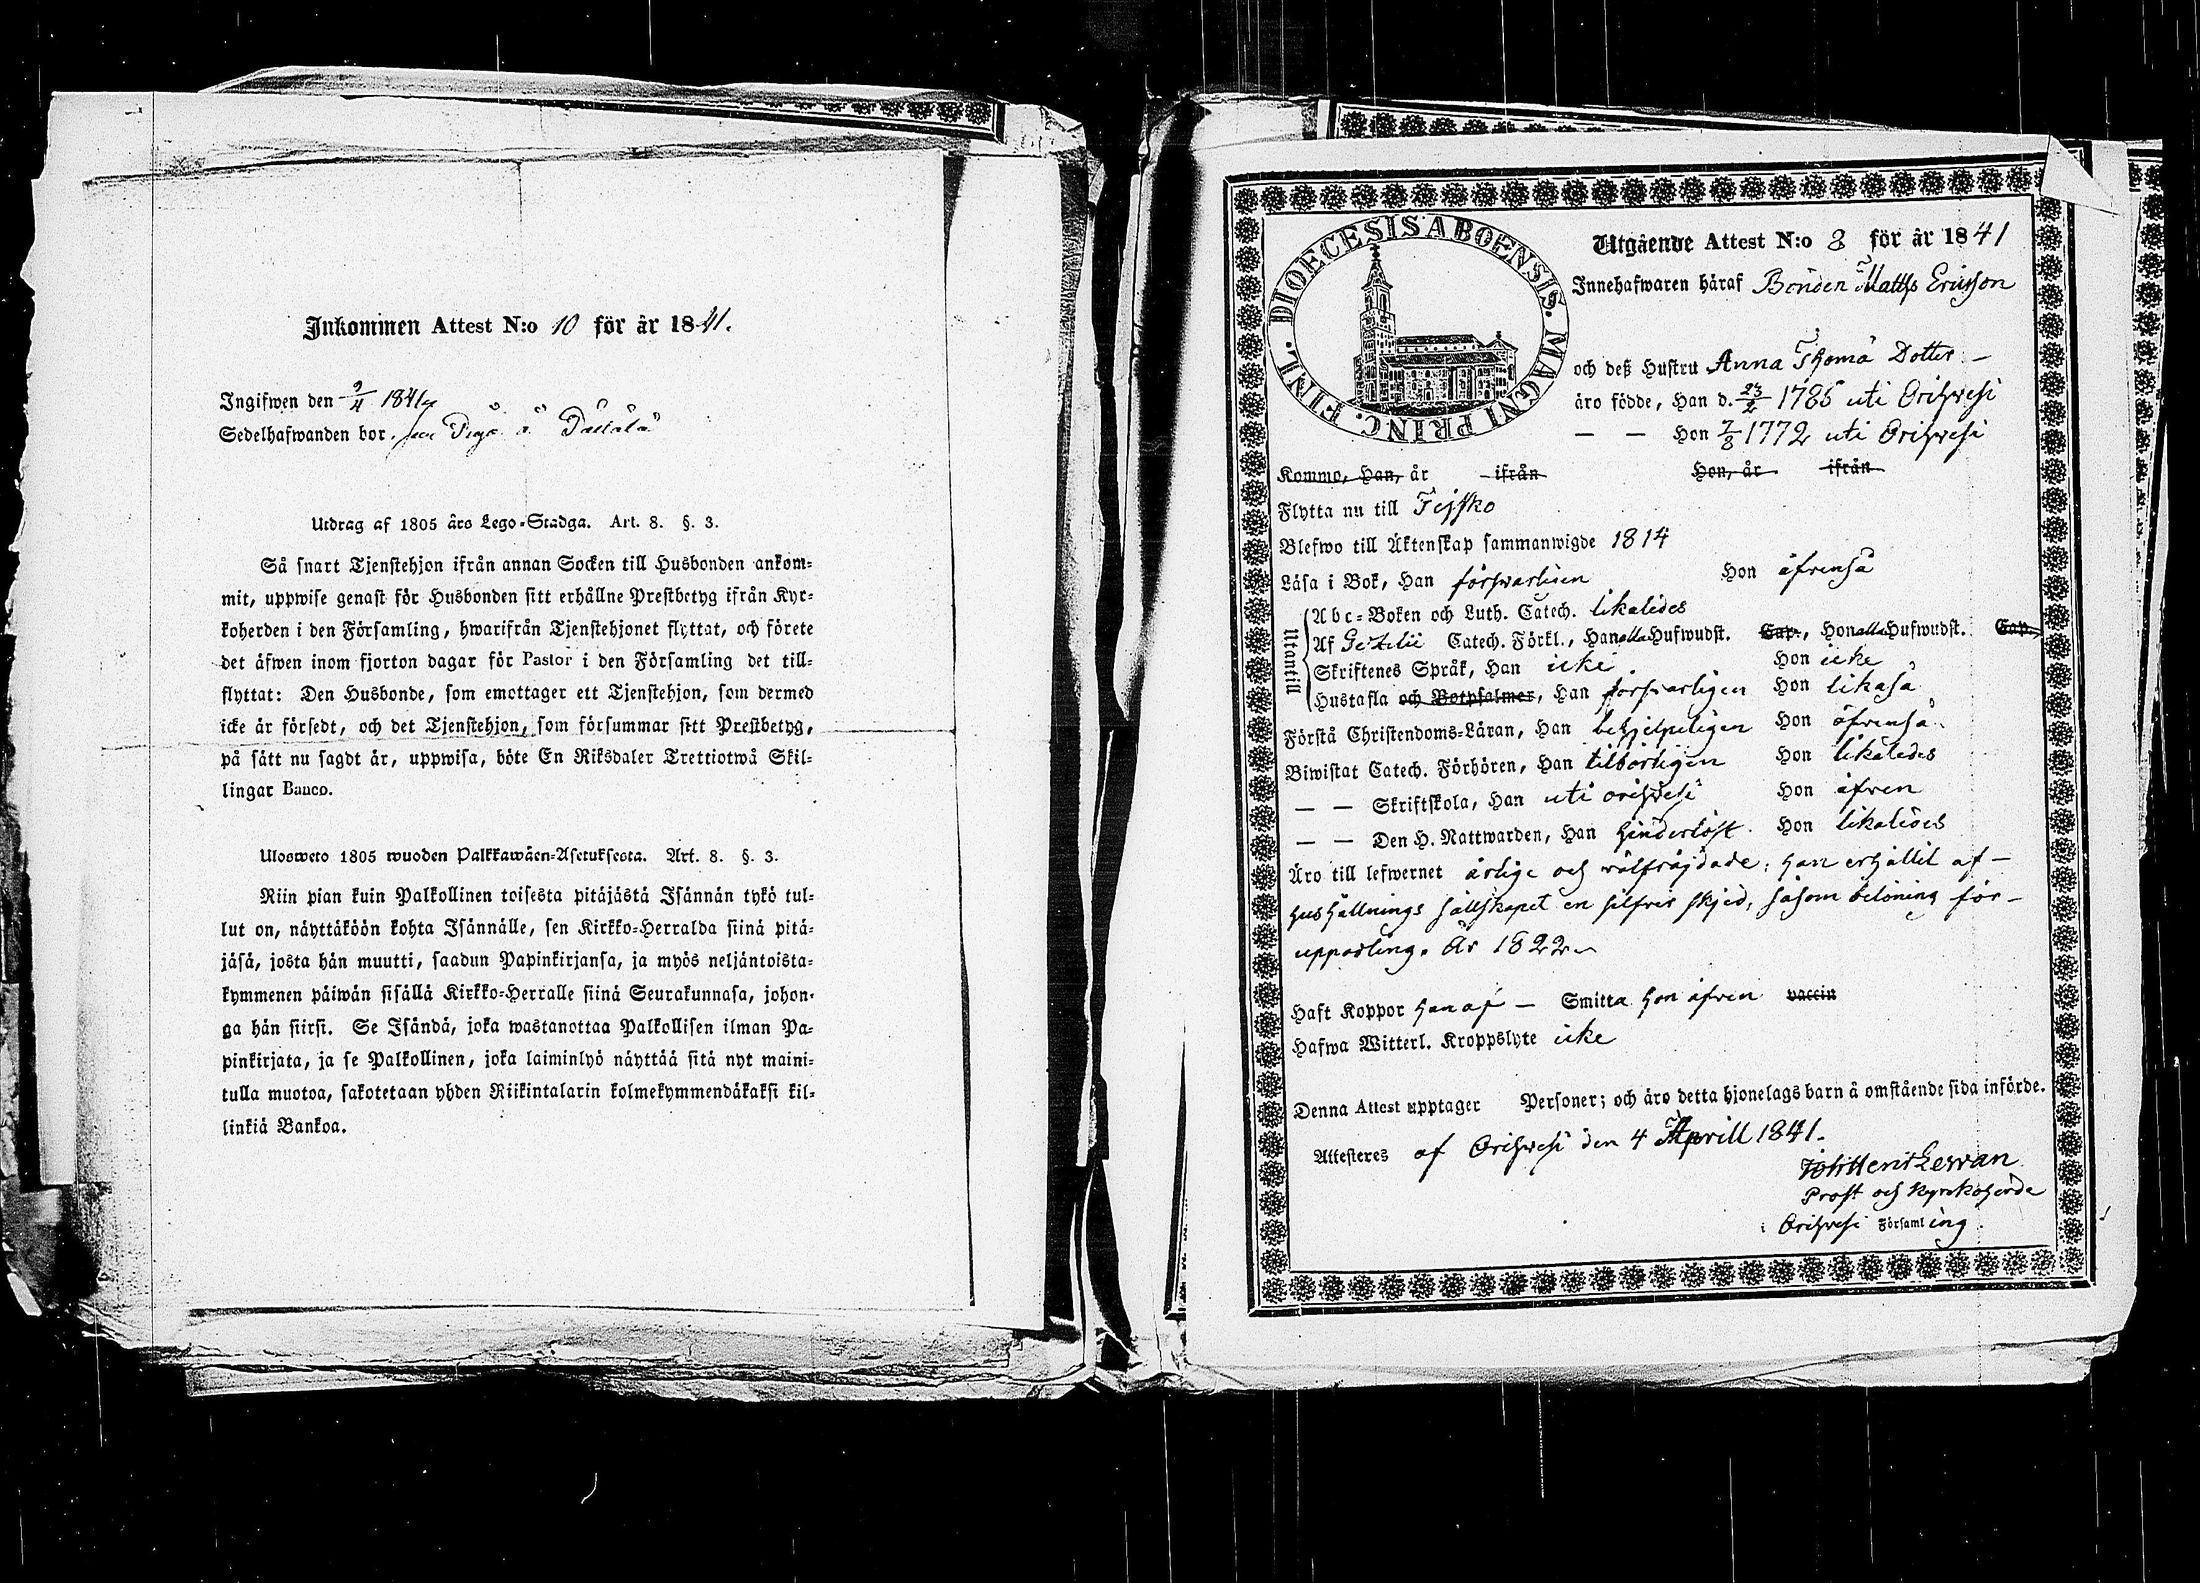 Inkommen Attest N:o 10 för år 1841.
Ingifwen den 9/4 1841
Sedelhafwanden bor som Piga å
Utdrag af 1805 års Lego-Stadga. Art. 8. §. 3.
Så snart Tjenstehjon ifrån annan Socken till Husbonden ankom-
mit, uppwise genast för Husbonden sitt erhållne Prestbetyg ifrån Kyr-
koherden i den Församling, hwarifrån Tjenstehjonet flyttat, och förete
det äfwen inom fjorton dagar för Pastor i den Församling det till-
flyttat: Den Husbonde, som emottager ett Tjenstehjon, som dermed
icke är försedt, och det Tjenstehjon, som försummar sitt Prestbetyg,
på sätt nu sagdt är, uppwisa, böte En Riksdaler Trettiotwå Skil-
lingar Banco.
Ulosweto 1805 wuoden Palkkawäen-Asetuksesta. Art. 8. §. 3.
Niin pian kuin Palkollinen toisesta pitäjästä Isännän tykö tul-
lut on, näyttäköön kohta Isännälle, sen Kirkko-Herralda siinä pitä-
jäsä, josta hän muutti, saadun Papinkirjansa, ja myös neljäntoista-
kymmenen päiwän sisällä Kirkko-Herralle siinä Seurakunnasa, johon-
ga hän siirsi. Se Isändä, joka wastanottaa Palkollisen ilman Pa-
pinkirjata, ja se Palkollinen, joka laiminlyö näyttää sitä nyt maini-
tulla muotoa, sakotetaan yhden Riikintalarin kolmekymmendäkaksi kil-
linkiä Bankoa.
DIOECESIS ABOENSIS. MAGNI PRINC. FINL.
Utgående Attest N:o 8 för år 1841
Innehafwaren häraf Bonden Matts Ericsson
och deß Hustru Anna Thomä Dotter –
äro födde, Han d. 23/2 1785 uti Orihvesi
— — Hon 7/8 1772 uti Orihvesi
Kommo, Han, år ifrån Hon, år ifrån
Flytta nu till Teisko
Blefwo till Äktenskap sammanwigde 1814
Läsa i Bok, Han försvarligen Hon äfvenså
Utantill
Abc-Boken och Luth. Catech. likaledes
Af Gezelii Catech. Förkl., Han alla Hufwudst. Cap., Hon alla Hufwudst. Cap.,
Skriftenes Språk, Han icke Hon icke
Hustafla och Botpsalmer, Han försvarligen Hon likaså
Förstå Christendoms-Läran, Han behjelpeligen Hon äfvenså
Biwistat Catech. Förhören, Han tilbörligen Hon likaledes
— — Skriftskola, Han uti Orihvesi Hon äfven
— — Den H. Nattwarden, Han hinderlöst Hon likaledes
Äro till lefwernet ärlige och välfräjdade; han erhållit af –
hushållnings sällskapet en silfver skjed, såsom belöning för –
uppodling. År 1822
Haft Koppor han af – Smitta hon äfven vaccin
Hafwa Witterl. Kroppslyte icke
Denna Attest upptager Personer; och äro detta hjonelags barn å omstående sida införde.
Attesteres af Orihvesi den 4 Aprill 1841.
Prost och Kyrkoherde
i Orihvesi Församling